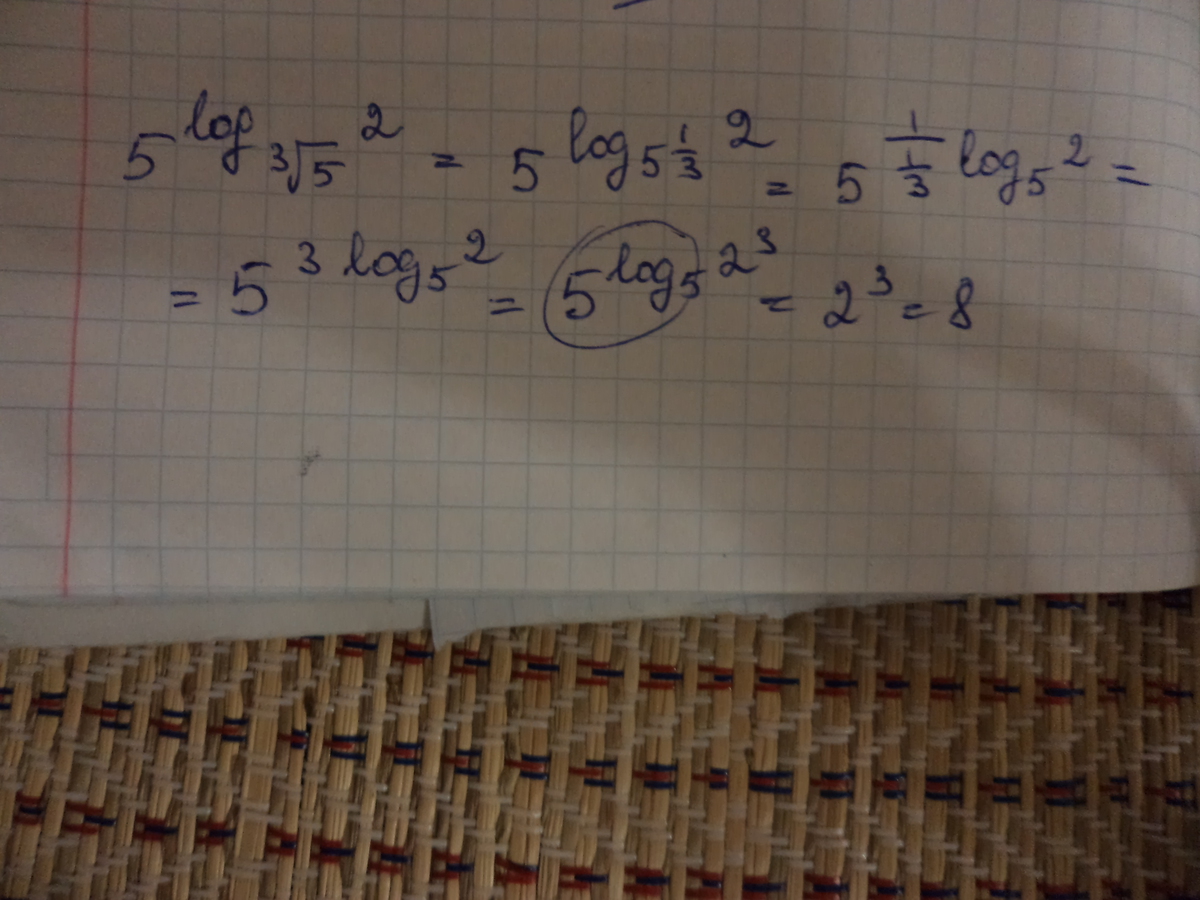 5^{log_{∛5} 2} = 5^{log_{5^{1/3}} 2} = 5^{\frac{1}{\frac{1}{3}} log_5 2} =
= 5^{3 log_5 2} = 5^{log_5 2^3} = 2^3 = 8